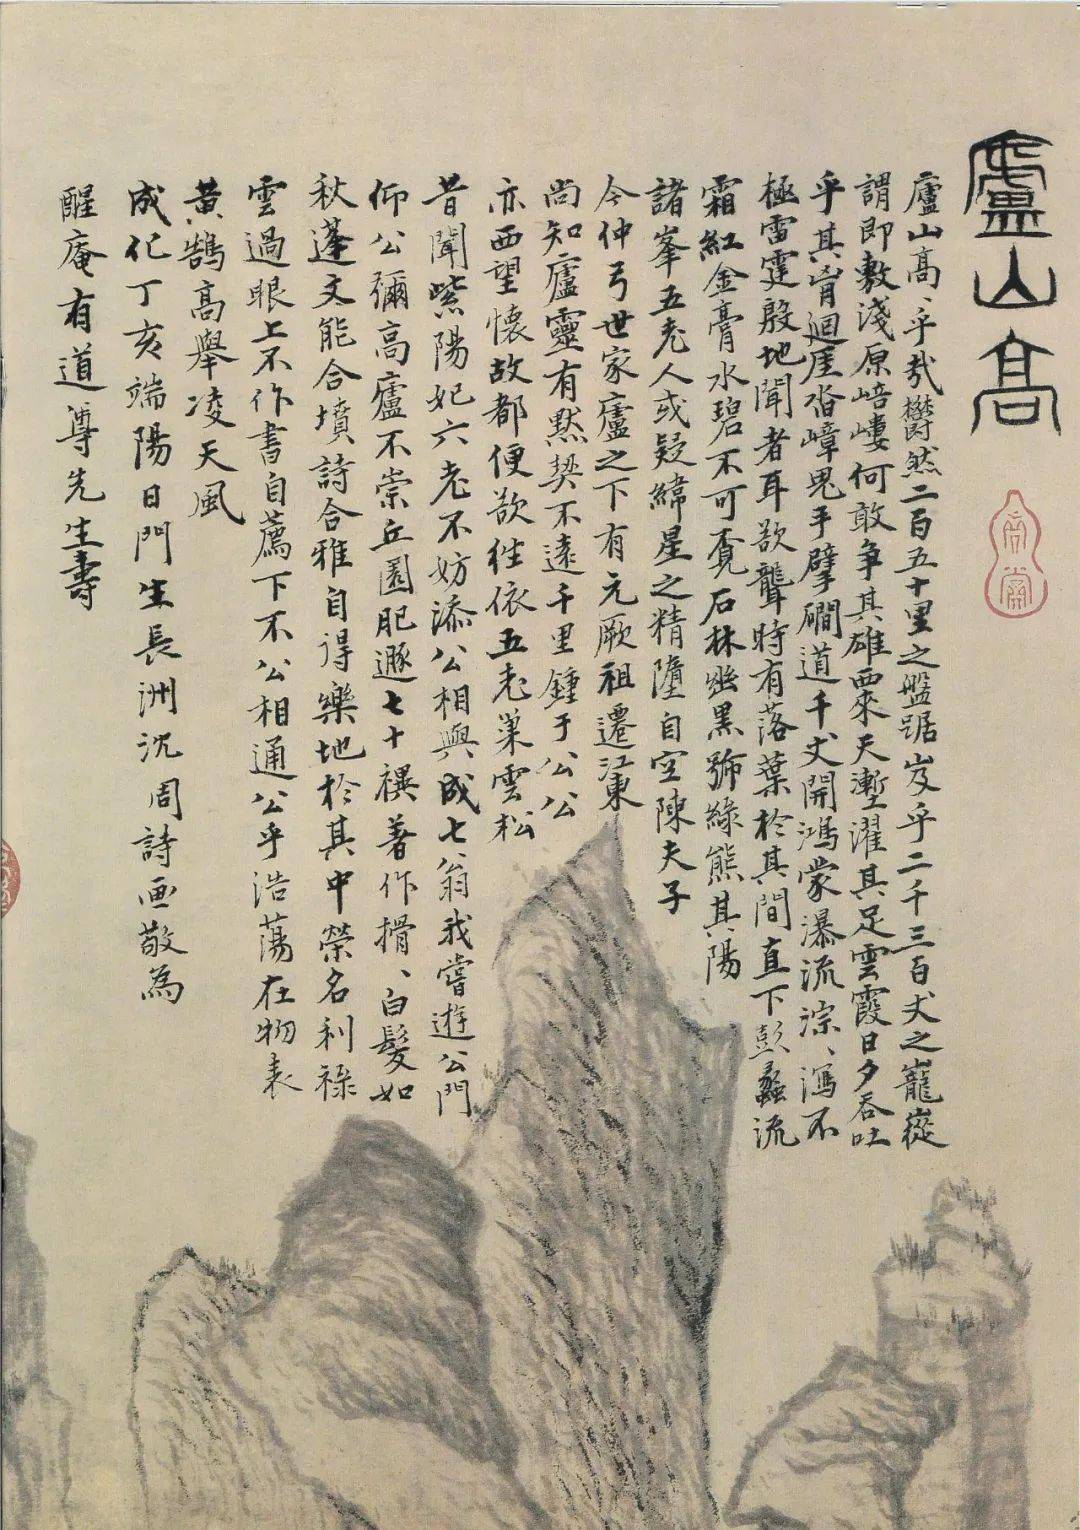 廬山高
廬山高、乎哉鬱然二百五十里之盤踞岌乎二千三百丈之巃嵷
謂即敷淺原培嶁何敢爭其雄西來天塹濯其足雲霞日夕吞吐
乎其胷迴厓沓嶂鬼手擘磵道千丈開鴻蒙瀑流淙、瀉不
極雷霆殷地聞者耳欲聾時有落葉於其間直下彭蠡流
霜紅金膏水碧不可覔石林幽黑號綠熊其陽
諸峯五老人或疑緯星之精墮自空陳夫子
今仲弓世家廬之下有元厥祖遷江東
尚知廬靈有默契不遠千里鍾于公公
亦西望懷故都便欲往依五老巢雲松
昔聞紫陽妃六老不妨添公相與成七翁我嘗遊公門
仰公彌高廬不崇丘園肥遯七十禩著作揹、白髮如
秋蓬文能合墳詩合雅自得樂地於其中榮名利祿
雲過眼上不作書自薦下不公相通公乎浩蕩在物表
黃鵠高舉凌天風
成化丁亥端陽日門生長洲沈周詩畫敬為
醒庵有道尊先生壽